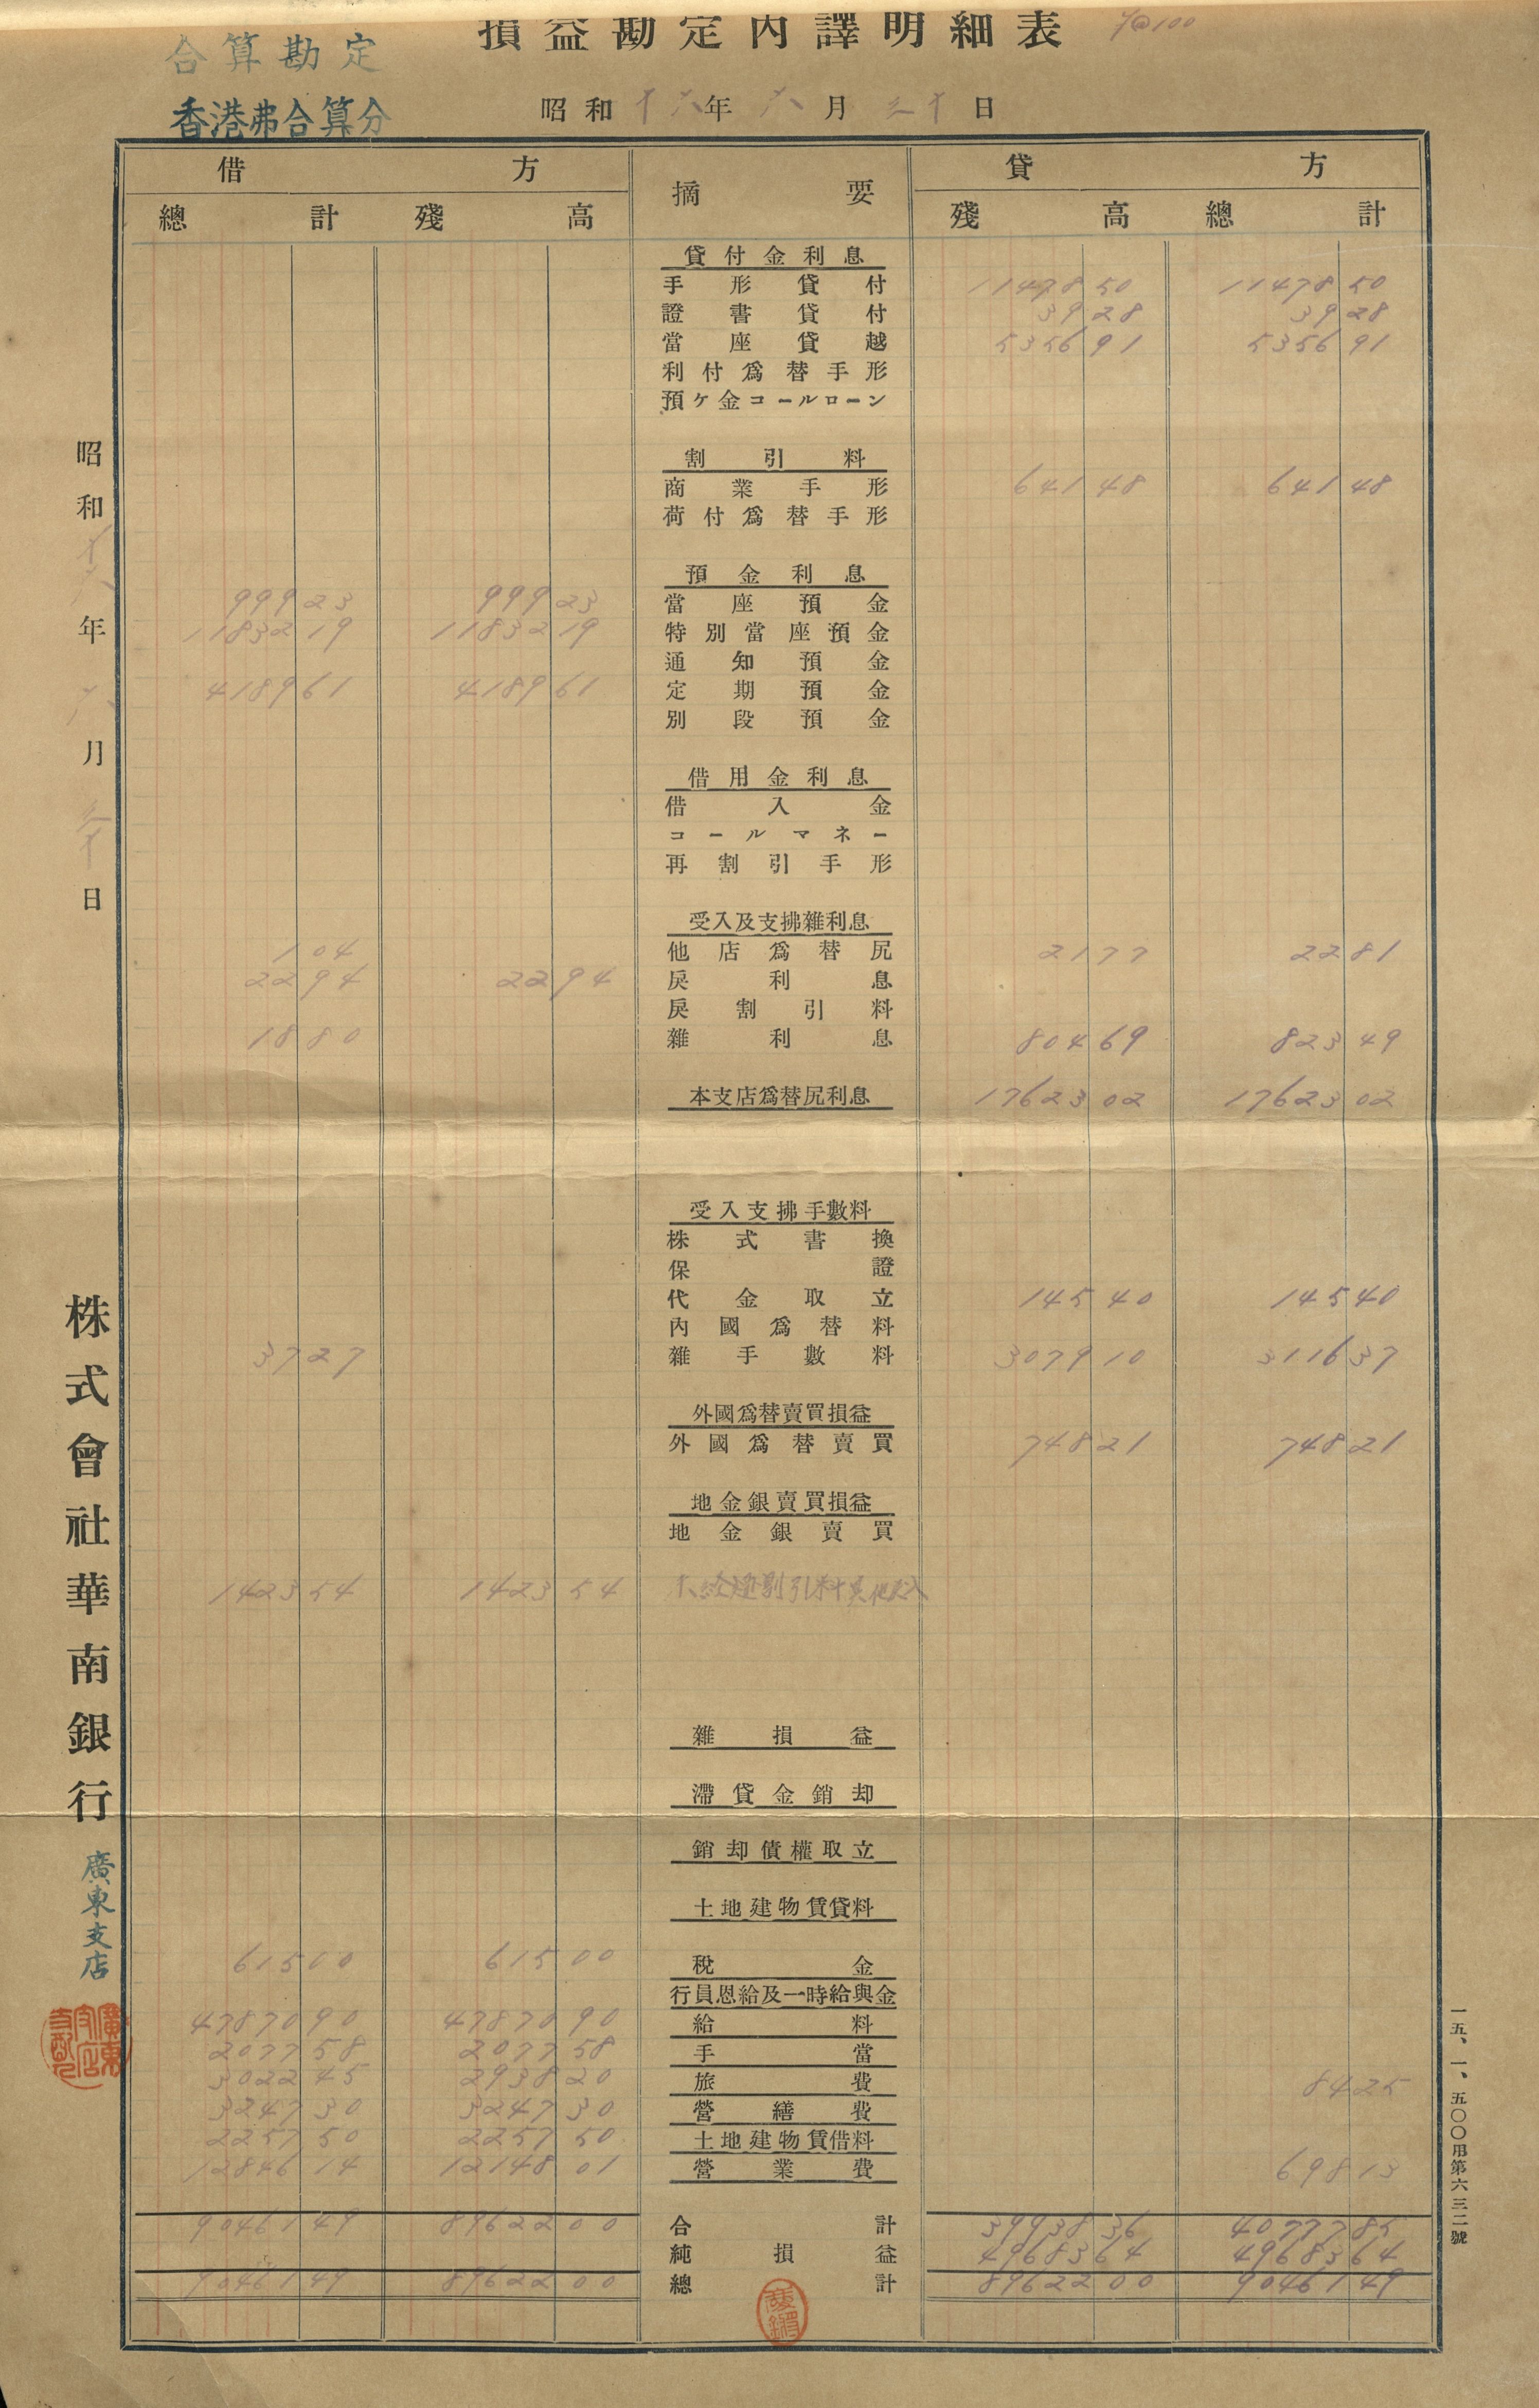 損益勘定内譯明細表 7@100
合算勘定
香港弗合算分
昭和十六年六月三十日
借方 摘要 貸方
總計 殘高 殘高 總計
貸付金利息
手形貸付 11478 50 11478 50
證書貸付 39 28 39 28
當座貸越 5356 91 5356 91
利付爲替手形
預ケ金コールローン
割引料
商業手形 641 48 641 48
荷付爲替手形
預金利息
999 23 999 23 當座預金
11832 19 11832 19 特別當座預金
通知預金
4189 61 4189 61 定期預金
別段預金
借用金利息
借入金
コールマネー
再割引手形
受入及支拂雜利息
1 04 他店爲替尻 21 77 22 81
22 94 22 94 戾利息
戾割引料
18 80 雜利息 804 69 823 49
本支店爲替尻利息 17623 02 17623 02
受入支拂手數料
株式書換
保證
代金取立 145 40 145 40
內國爲替料
37 27 雜手數料 3079 10 3116 37
外國爲替賣買損益
外國爲替賣買 748 21 748 21
地金銀賣買損益
地金銀賣買
1423 54 1423 54 未經過割引料其他戾入
雜損益
滯貸金銷却
銷却債權取立
土地建物賃貸料
615 00 615 00 稅金
行員恩給及一時給與金
47870 90 47870 90 給料
2077 58 2077 58 手當
3022 45 2938 20 旅費 84 25
3247 30 3247 30 營繕費
2257 50 2257 50 土地建物賃借料
12846 14 12148 01 營業費 698 13
90461 49 89622 00 合計 39938 36 40777 85
純損益 49683 64 49683 64
90461 49 89622 00 總計 89622 00 90461 49
昭和十六年六月三十日
株式會社華南銀行
廣東支店
一五、一、五〇〇用第六三二號